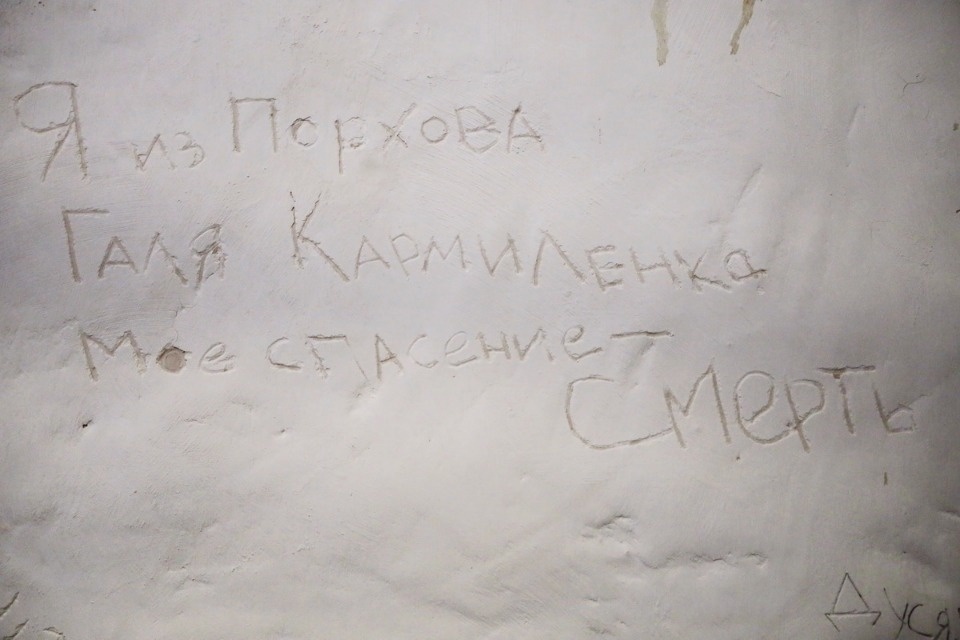 Я из Порхова
Галя Кармиленка
Мое спасение —
Смерть
Дуся